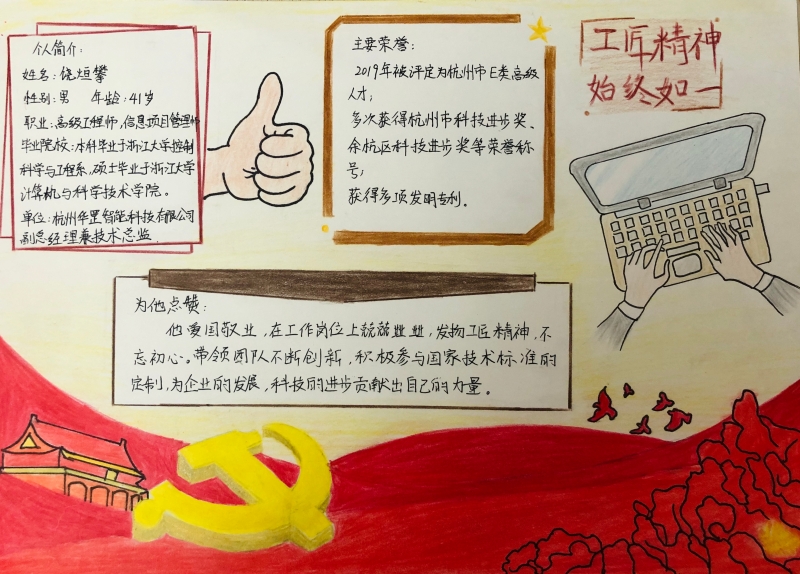 个人简介:
姓名:饶烜攀
性别:男 年龄:41岁
职业:高级工程师,信息项目管理师
毕业院校:本科毕业于浙江大学控制
科学与工程系,硕士毕业于浙江大学
计算机与科学技术学院。
单位:杭州华罡智能科技有限公司
副总经理兼技术总监
主要荣誉:
2019年被评定为杭州市E类高级
人才;
多次获得杭州市科技进步奖、
余杭区科技进步奖等荣誉称
号;
获得多项发明专利。
工匠精神
始终如一
为他点赞:
他爱国敬业,在工作岗位上兢兢业业,发扬工匠精神,不
忘初心。带领团队不断创新,积极参与国家技术标准的
定制,为企业的发展,科技的进步贡献出自己的力量。